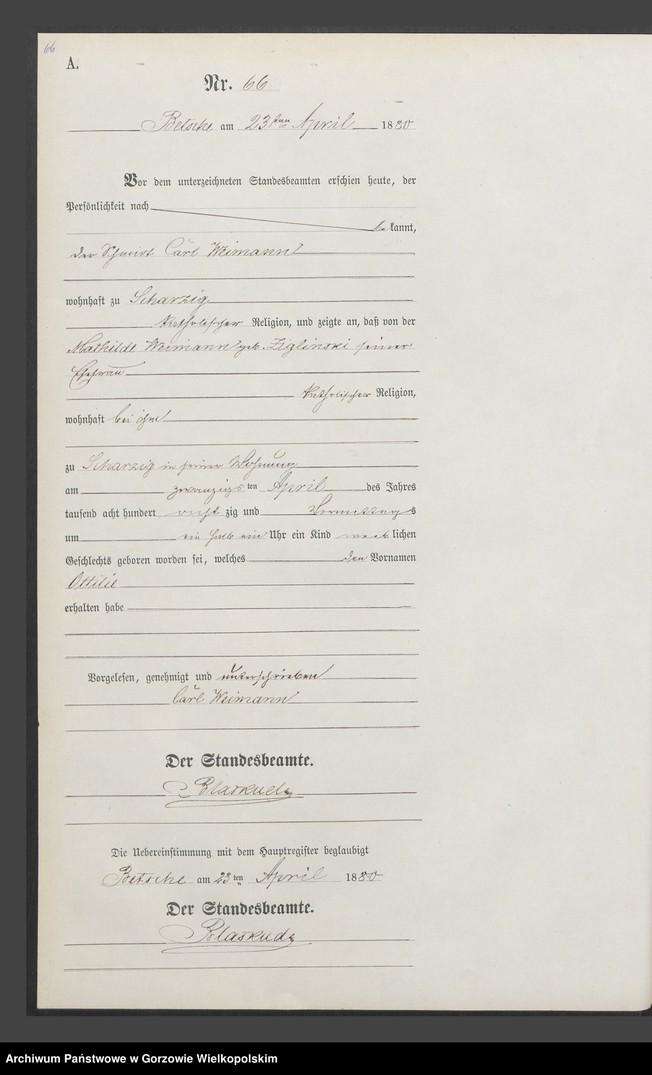 66
A.
Nr. 66
Betsche am 23ten April 1880
Vor dem unterzeichneten Standesbeamten erschien heute, der
Persönlichkeit nach
bekannt,
der Schmidt Carl Weimann
wohnhaft zu Scharzig
katholischer Religion, und zeigte an, daß von der
Mathilde Weimann geb. Ziglinski seiner
Ehefrau
katholischer Religion,
wohnhaft bei ihm
zu Scharzig in seiner Wohnung
am zwanzigsten April des Jahres
tausend acht hundert achtzig und Vormittags
um ein halb ein Uhr ein Kind weiblichen
Geschlechts geboren worden sei, welches den Vornamen
Ottilie
erhalten habe
Vorgelesen, genehmigt und unterschrieben
Carl Weimann
Der Standesbeamte.
Die Uebereinstimmung mit dem Hauptregister beglaubigt
Betsche am 23ten April 1880
Der Standesbeamte.
Archiwum Państwowe w Gorzowie Wielkopolskim